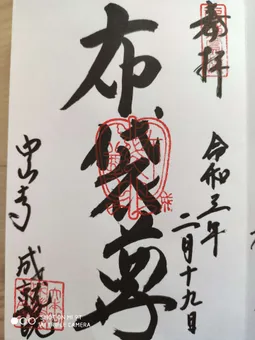 奉拝
令和三年
二月十九日
布袋尊
中山寺
成就院
SHOT ON MI 9T
AI TRIPLE CAMERA